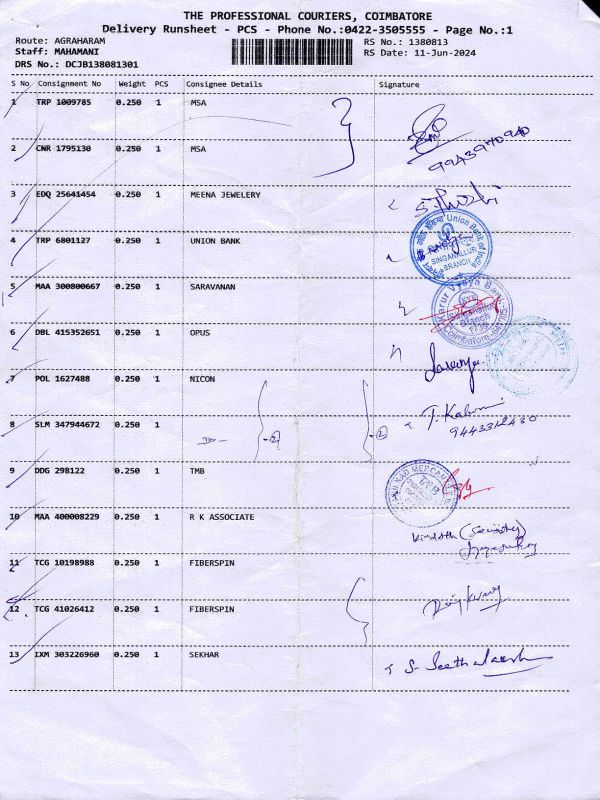 THE PROFESSIONAL COURIERS, COIMBATORE
Delivery Runsheet - PCS - Phone No.:0422-3505555 - Page No.:1
Route: AGRAHARAM RS No.: 1380813
Staff: MAHAMANI RS Date: 11-Jun-2024
DRS No.: DCJB138081301
S No Consignment No Weight PCS Consignee Details Signature
1 TRP 1009785 0.250 1 MSA
2 CNR 1795130 0.250 1 MSA
9943970940
3 EDQ 25641454 0.250 1 MEENA JEWELERY
4 TRP 6801127 0.250 1 UNION BANK
Union Bank of India
SINGANALLUR
BRANCH
5 MAA 300800667 0.250 1 SARAVANAN
Karur Vysya Bank
Branch
Coimbatore
6 DBL 415352651 0.250 1 OPUS
7 POL 1627488 0.250 1 NICON
8 SLM 347944672 0.250 1
9 DDG 298122 0.250 1 TMB
10 MAA 400008229 0.250 1 R K ASSOCIATE
(Security)
11 TCG 10198988 0.250 1 FIBERSPIN
13
12 TCG 41026412 0.250 1 FIBERSPIN
13 IXM 303226960 0.250 1 SEKHAR
S. Seethalakshmi